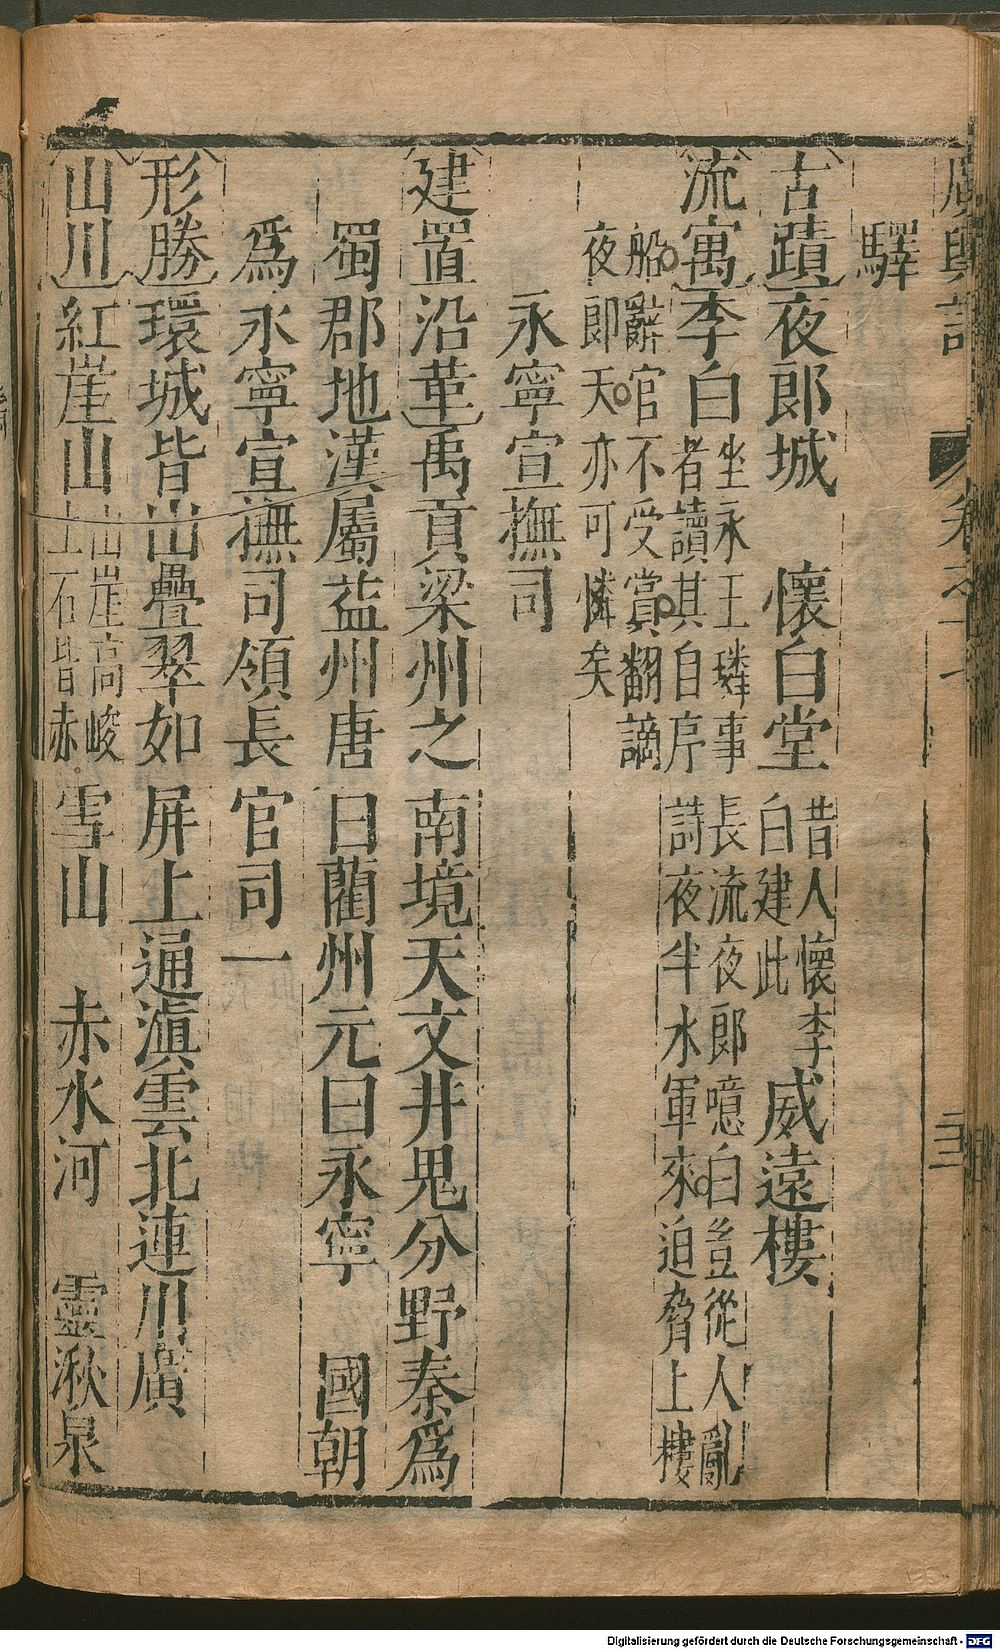 廣輿記
卷之十
驛
古蹟夜郎城 懷白堂昔人懷李白建此 威遠樓
流寓李白坐永王璘事長流夜郎噫白豈從人亂者讀其自序詩夜半水軍來迫脅上樓
船辭官不受賞翻謫夜郎天亦可憐矣
永寧宣撫司
建置沿革禹貢梁州之南境天文井鬼分野秦爲
蜀郡地漢屬益州唐曰藺州元曰永寧 國朝
爲永寧宣撫司領長官司一
形勝環城皆山疊翠如屏上通滇雲北連川廣
山川紅崖山山崖高峻土石皆赤 雪山 赤水河 靈湫泉
Digitalisierung gefördert durch die Deutsche Forschungsgemeinschaft - DFG